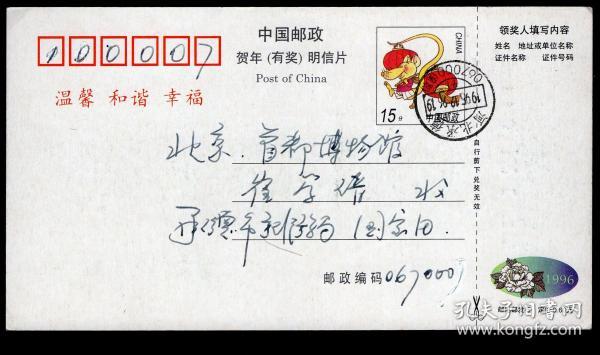 100007
中国邮政
贺年(有奖)明信片
Post of China
温馨 和谐 幸福
CHINA
15分
中国邮政
领奖人填写内容
姓名 地址或单位名称
证件名称 证件号码
自行剪下兑奖无效
北京·首都博物馆
崔学谙 收
承德市
邮政编码 067000
1996
孔夫子旧书网
www.kongfz.com